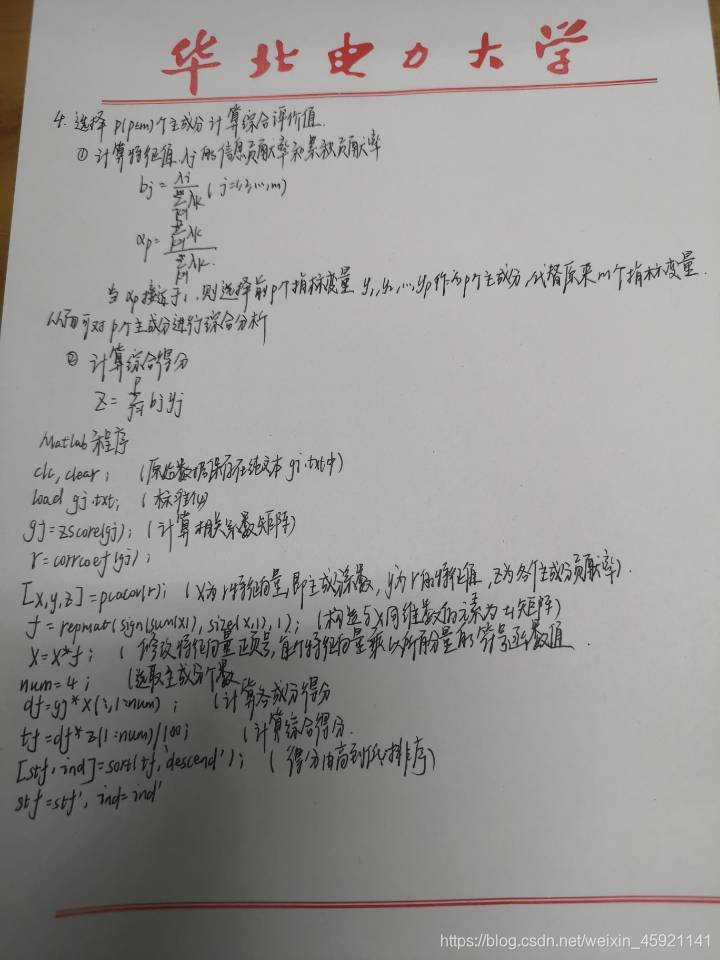 华北电力大学
4. 选择p(p≤m)个主成分计算综合评价值.
① 计算特征值λj的信息贡献率和累积贡献率
bj = λj / Σ(k=1..m) λk (j=1,2,…,m)
αp = Σ(k=1..p) λk / Σ(k=1..m) λk.
当αp接近于1, 则选择前p个指标变量 y1, y2, …, yp作为p个主成分, 代替原来m个指标变量.
从而可对p个主成分进行综合分析
② 计算综合得分
Z = Σ(j=1..p) bj yj
Matlab程序
clc, clear; (原始数据保存在纯文本gj.txt中)
load gj.txt; (标准化)
gj=zscore(gj); (计算相关系数矩阵)
r=corrcoef(gj);
[x,y,z]=pcacov(r); (x为r特征向量, 即主成分系数, y为r的特征值, z为各个主成分贡献率).
f=repmat(sign(sum(x)), size(x,1),1); (构造与x同维数的元素为±1矩阵)
x=x*f; (修改特征向量正负号, 每个特征向量乘以所有分量的符号函数值
num=4; (选取主成分个数
df=gj*x(:,1:num); (计算各成分得分
tf=df*z(1:num)/100; (计算综合得分.
[stf, ind]=sort(tf,'descend'); (得分由高到低排序)
stf=stf', ind=ind'
https://blog.csdn.net/weixin_45921141